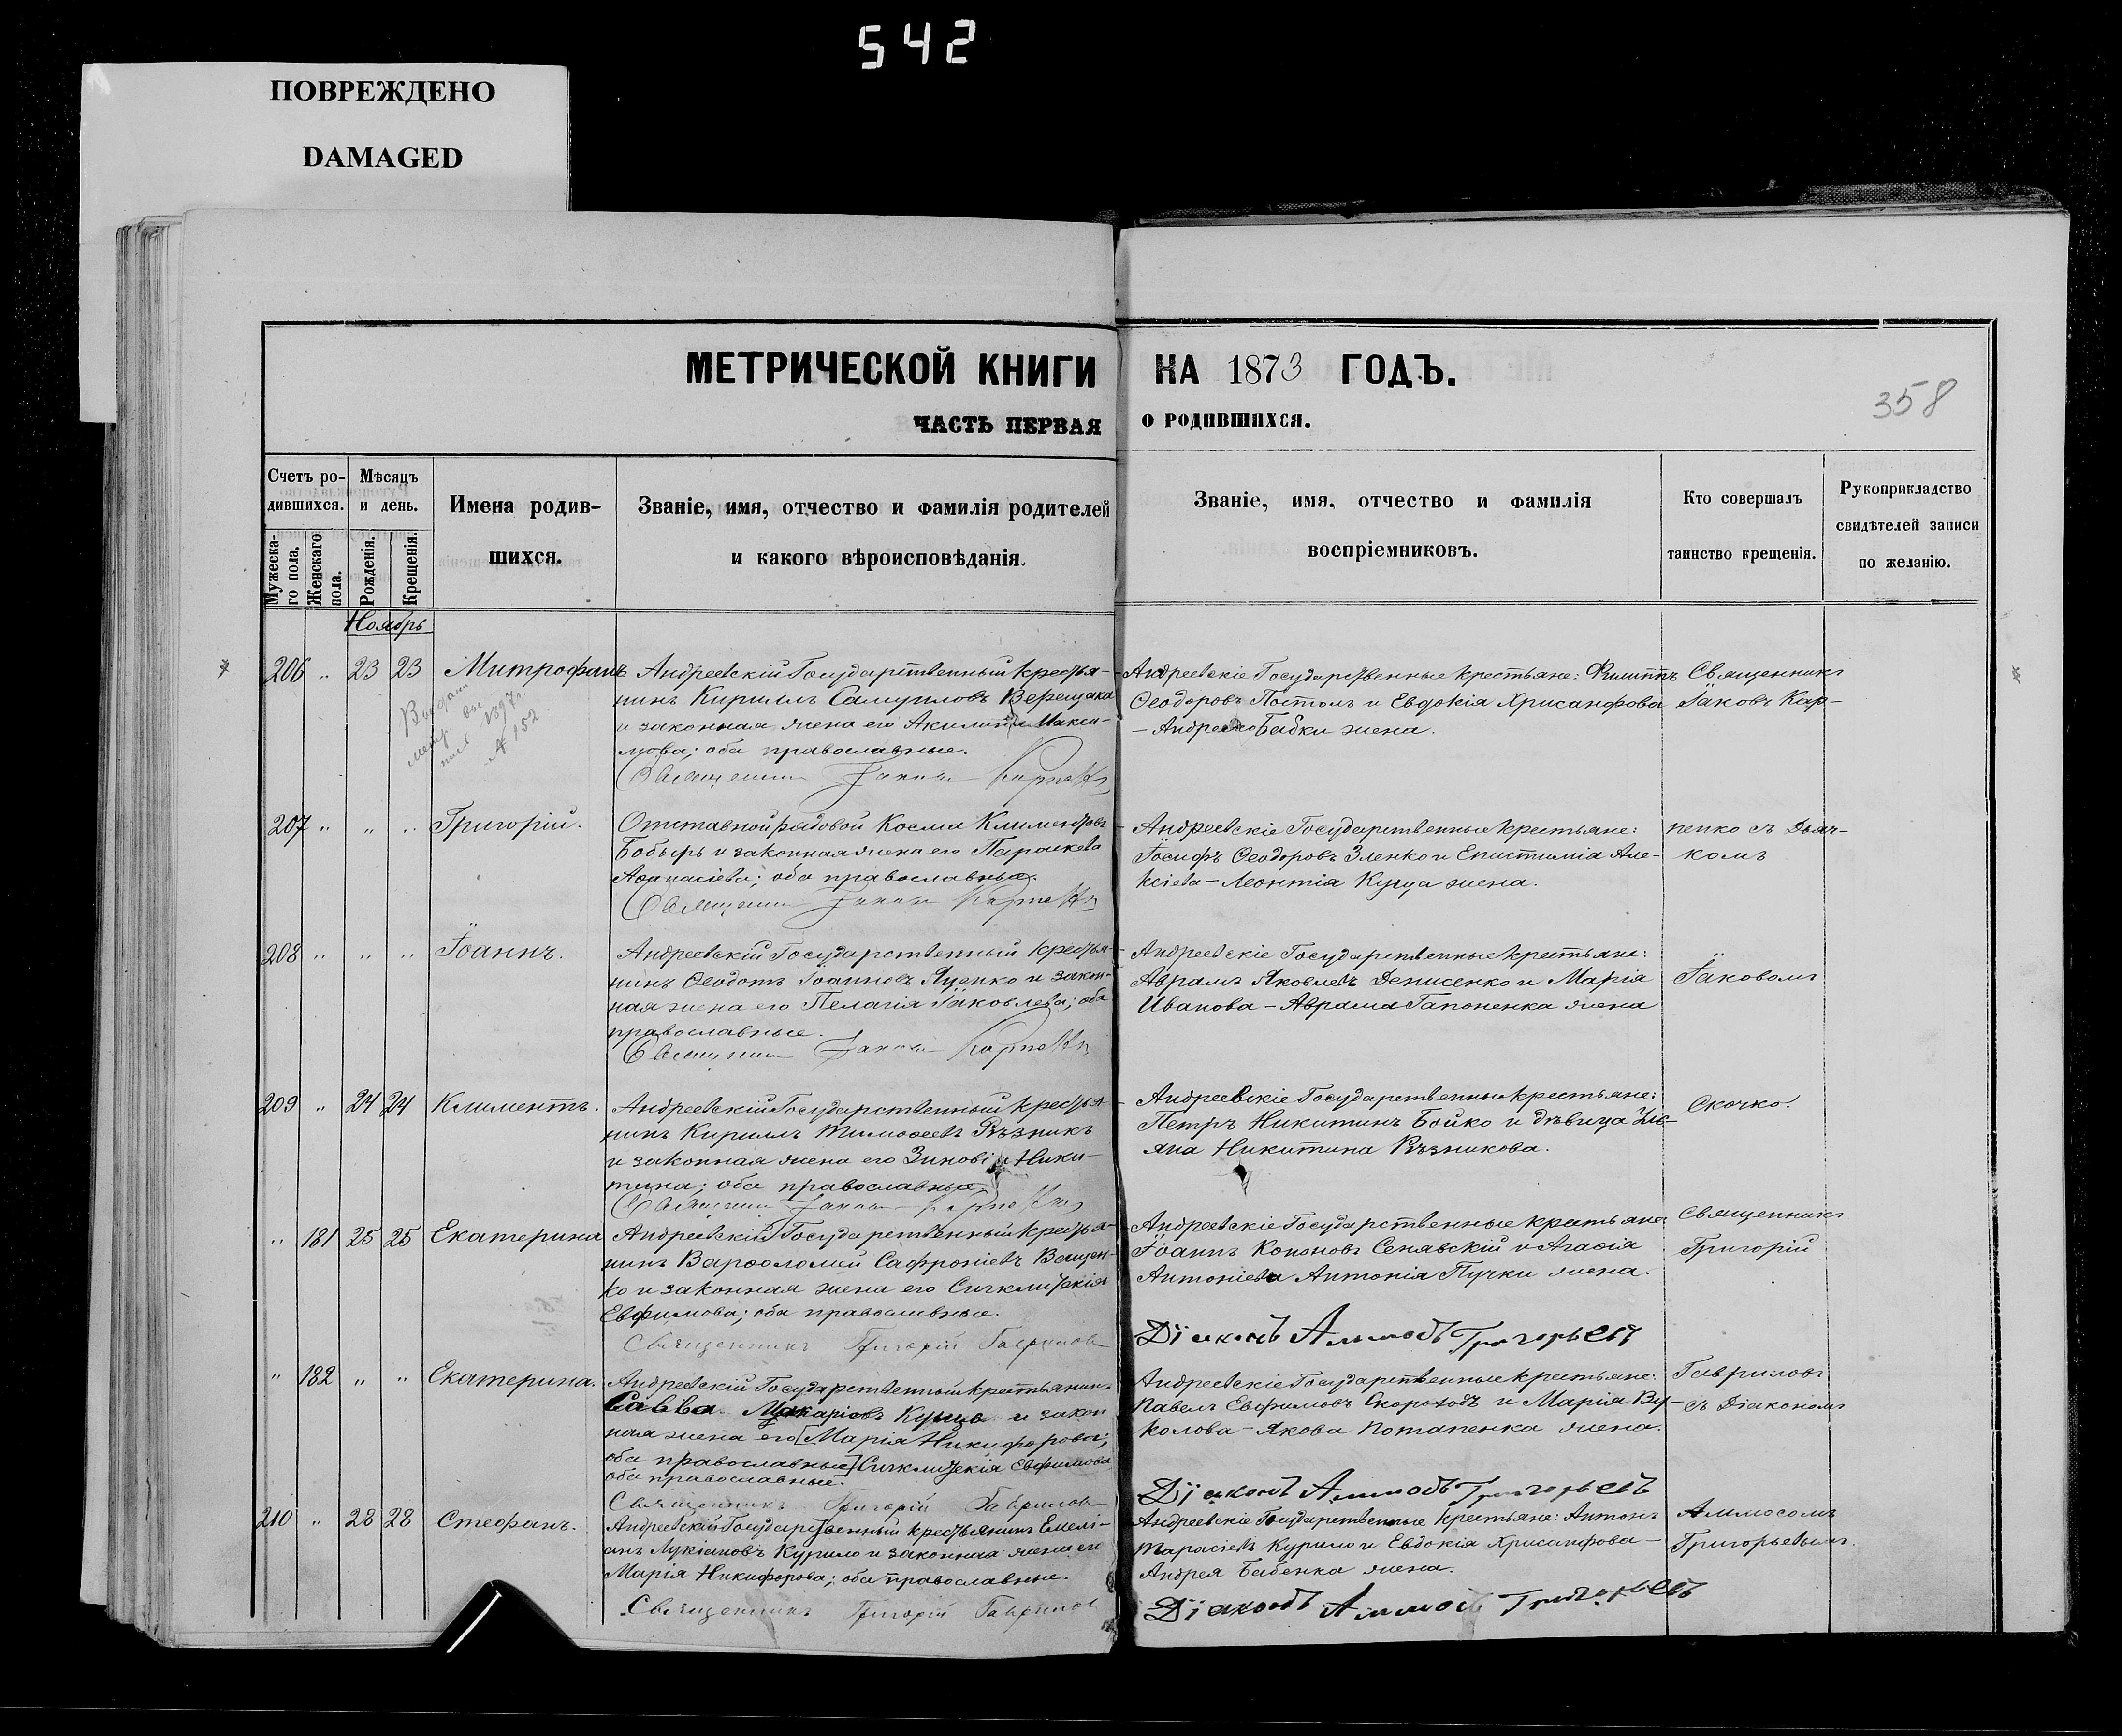 542
ПОВРЕЖДЕНО
DAMAGED
МЕТРИЧЕСКОЙ КНИГИ НА 1873 ГОДЪ.
358
ЧАСТЬ ПЕРВАЯ О РОДИВШИХСЯ.
Счетъ ро-
дившихся.
Мужеска-
го пола.
Женскаго
пола.
Мѣсяцъ
и день.
Рожденія.
Крещенія.
Имена родив-
шихся.
Званіе, имя, отчество и фамилія родителей
и какого вѣроисповѣданія.
Званіе, имя, отчество и фамилія
воспріемниковъ.
Кто совершалъ
таинство крещенія.
Рукоприкладство
свидѣтелей записи
по желанію.
Ноябрь
206 " 23 23 Митрофанъ
Выдана
метр. вы
1897 г.
№ 152
Андреевскій Государственный крестья-
нинъ Кириллъ Самуиловъ Верещака
и законная жена его Акилина Макси-
мова; оба православные.
Священникъ Іаковъ
Андреевскіе Государственные крестьяне: Филиппъ
Ѳеодоровъ Постолъ и Евдокія Хрисанфова
– Андрея Бабки жена.
Священникъ
Іаковъ Кар-
207 " " " Григорій.
Отставной рядовой Косма Климентовъ
Бобырь и законная жена его Параскева
Аѳанасіева; оба православные.
Священникъ Іаковъ
Андреевскіе Государственные крестьяне:
Іосифъ Ѳеодоровъ Зленко и Епистимія Але-
ксіева – Леонтія Куца жена.
пенко съ Дьяч-
комъ
208 " " " Іоаннъ.
Андреевскій Государственный крестья-
нинъ Ѳеодотъ Іоанновъ Яценко и закон-
ная жена его Пелагія Іаковлева; оба
православные.
Священникъ Іаковъ
Андреевскіе Государственные крестьяне:
Аврамъ Яковлевъ Денисенко и Марія
Иванова – Аврама Гапоненка жена
Іаковомъ
209 " 24 24 Климентъ.
Андреевскій Государственный крестья-
нинъ Кириллъ Тимоѳеевъ Рѣзникъ
и законная жена его Зиновія Ники-
тина; оба православные.
Священникъ Іаковъ
Андреевскіе Государственные крестьяне:
Петръ Никитинъ Бойко и дѣвица Улі-
яна Никитина Рѣзникова.
Скочко.
" 181 25 25 Екатерина
Андреевскій Государственный крестья-
нинъ Варѳоломей Сафроніевъ Ващен-
ко и законная жена его Сигклитикія
Евфимова; оба православные.
Священникъ Григорій Гавриловъ
Андреевскіе Государственные крестьяне:
Іоаннъ Кононовъ Сенявскій и Агаѳія
Антоніева Антонія Пучки жена.
Діаконъ Аммосъ Григорьевъ
Священникъ
Григорій
" 182 " " Екатерина.
Андреевскій Государственный крестьянинъ
Савва Макаріевъ Куца и закон
ная жена его [Марія Никифорова;
оба православные] Сигклитикія Евфимова
оба православные.
Священникъ Григорій Гавриловъ
Андреевскіе Государственные крестьяне:
Павелъ Евфимовъ Скороходъ и Марія Ву-
колова – Якова Потапенка жена.
Діаконъ Аммосъ Григорьевъ
Гавриловъ
съ Діакономъ
210 " 28 28 Стефанъ.
Андреевскій Государственный крестьянинъ Емелі-
анъ Лукіановъ Курило и законная жена его
Марія Никифорова; оба православные.
Священникъ Григорій Гавриловъ
Андреевскіе Государственные крестьяне: Антонъ
Тарасіевъ Курило и Евдокія Хрисанфова –
Андрея Бабенка жена.
Діаконъ Аммосъ Григорьевъ
Аммосомъ
Григорьевымъ.